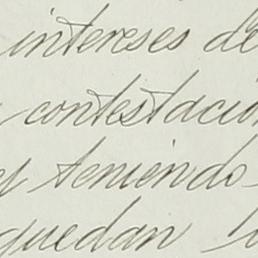 intereses de
contestación
y teniendo
quedan l